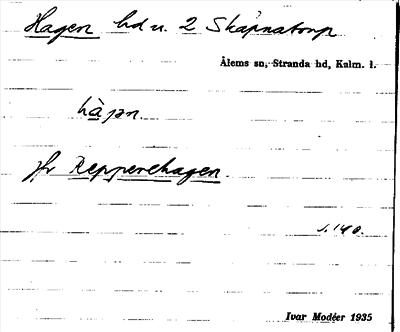 Hagen hd u. 2 Skäpnatorp
Ålems sn, Stranda hd, Kalm. l.
hàjən.
jfr Repperehagen.
s. 140.
Ivar Modéer 1935